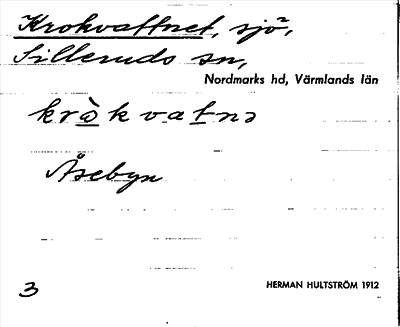 Krokvattnet, sjö,
Silleruds sn,
Nordmarks hd, Värmlands län
kròkvatnə
Åsebyn
3 HERMAN HULTSTRÖM 1912